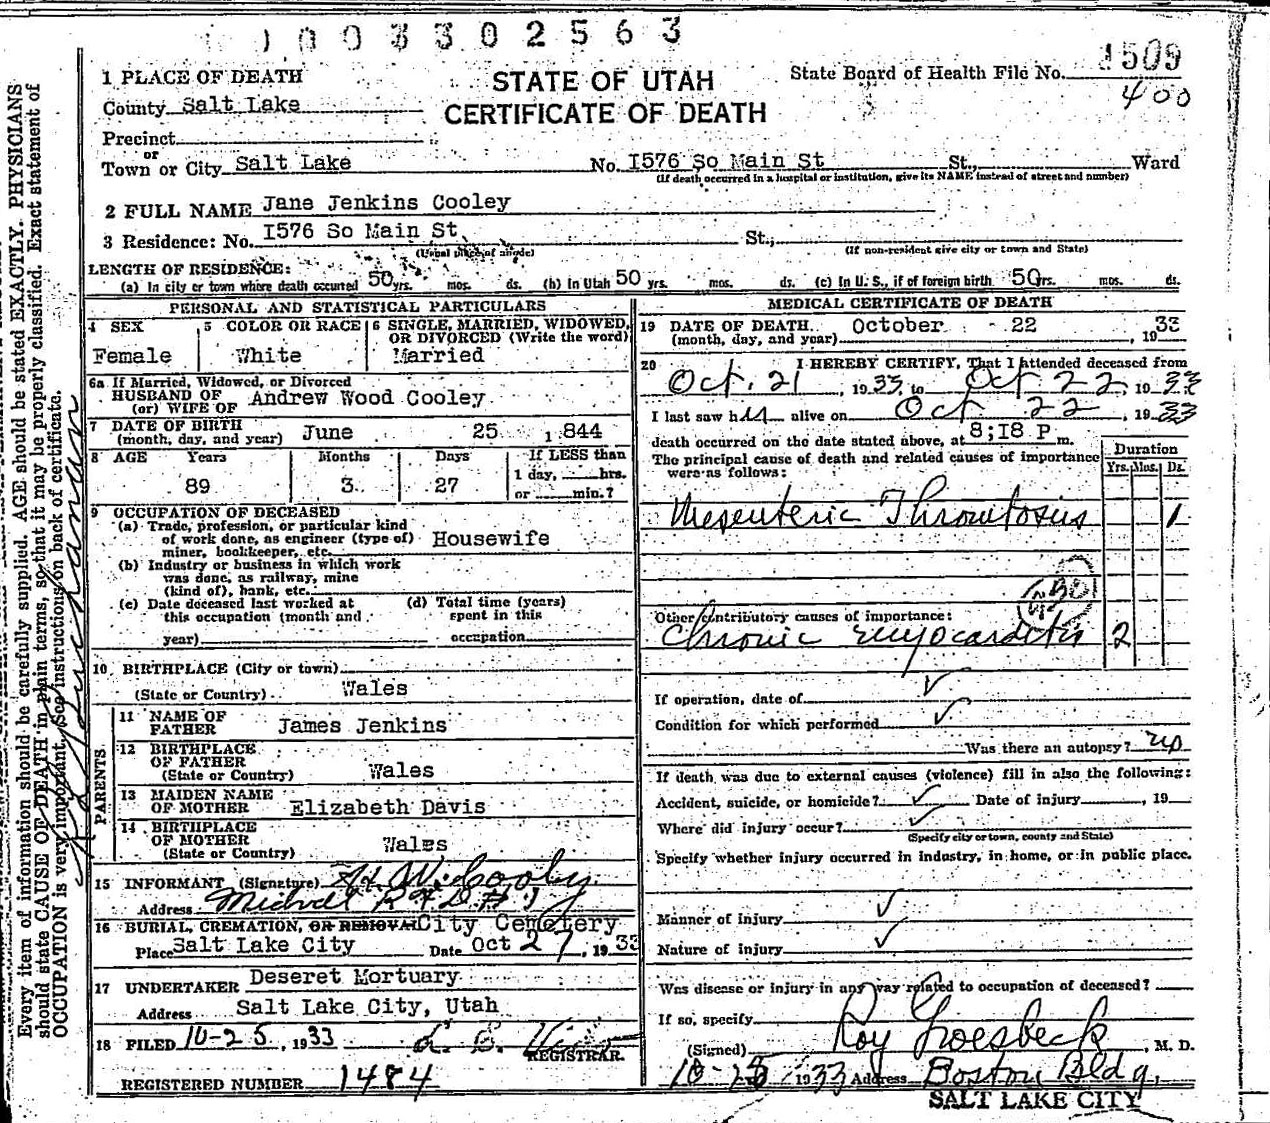 1003302563
1 PLACE OF DEATH
STATE OF UTAH
CERTIFICATE OF DEATH
State Board of Health File No. 1509
400
County Salt Lake
Precinct
or
Town or City Salt Lake No. I576 So Main St St., Ward
(If death occurred in a hospital or institution, give its NAME instead of street and number)
2 FULL NAME Jane Jenkins Cooley
3 Residence: No. I576 So Main St. St.,
(Usual place of abode) (If non-resident give city or town and State)
LENGTH OF RESIDENCE:
(a) In city or town where death occurred 50 yrs. mos. ds. (b) In Utah 50 yrs. mos. ds. (c) In U. S., if of foreign birth 50 yrs. mos. ds.
PERSONAL AND STATISTICAL PARTICULARS
4 SEX
Female
5 COLOR OR RACE
White
6 SINGLE, MARRIED, WIDOWED, OR DIVORCED (Write the word)
Married
6a If Married, Widowed, or Divorced
HUSBAND OF
(or) WIFE OF Andrew Wood Cooley
7 DATE OF BIRTH
(month, day, and year) June 25, 1844
8 AGE Years Months Days If LESS than
1 day, hrs.
89 3 27 or min.?
9 OCCUPATION OF DECEASED
(a) Trade, profession, or particular kind
of work done, as engineer (type of)
miner, bookkeeper, etc. Housewife
(b) Industry or business in which work
was done, as railway, mine
(kind of), bank, etc.
(c) Date deceased last worked at
this occupation (month and
year)
(d) Total time (years)
spent in this
occupation
10 BIRTHPLACE (City or town)
(State or Country) Wales
PARENTS
11 NAME OF
FATHER James Jenkins
12 BIRTHPLACE
OF FATHER
(State or Country) Wales
13 MAIDEN NAME
OF MOTHER Elizabeth Davis
14 BIRTHPLACE
OF MOTHER
(State or Country) Wales
15 INFORMANT (Signature) W. Cooley
Address Midvale R F D # 1
16 BURIAL, CREMATION, OR REMOVAL City Cemetery
Place Salt Lake City Date Oct 27, 1933
17 UNDERTAKER Deseret Mortuary
Address Salt Lake City, Utah
18 FILED 10-25, 1933
REGISTRAR.
REGISTERED NUMBER 1484
MEDICAL CERTIFICATE OF DEATH
19 DATE OF DEATH
(month, day, and year) October 22, 1933
20 I HEREBY CERTIFY, That I attended deceased from
Oct. 21 1933, to Oct 22, 1933
I last saw h er alive on Oct 22, 1933
death occurred on the date stated above, at 8;I8 P m.
The principal cause of death and related causes of importance
were as follows:
Duration
Yrs. Mos. Ds.
Mesenteric Thrombosis 1
Other contributory causes of importance:
Chronic Myocarditis 2
If operation, date of
Condition for which performed
Was there an autopsy? no
If death was due to external causes (violence) fill in also the following:
Accident, suicide, or homicide? Date of injury , 19
Where did injury occur?
(Specify city or town, county and State)
Specify whether injury occurred in industry, in home, or in public place.
Manner of injury
Nature of injury
Was disease or injury in any way related to occupation of deceased?
If so, specify
(Signed) Roy Groesbeck, M. D.
1933 Address Boston Bldg.
SALT LAKE CITY
Every item of information should be carefully supplied. AGE should be stated EXACTLY. PHYSICIANS
should state CAUSE OF DEATH in plain terms, so that it may be properly classified. Exact statement of
OCCUPATION is very important. See instructions on back of certificate.